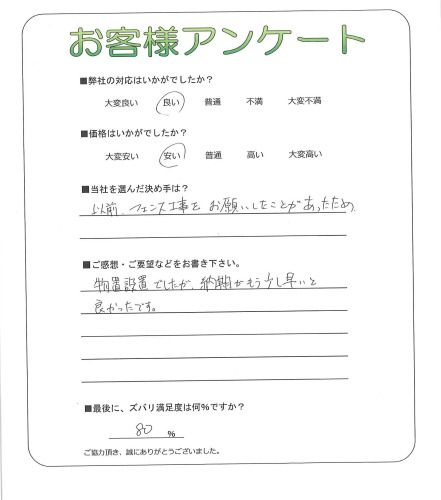 お客様アンケート
■弊社の対応はいかがでしたか?
大変良い 良い 普通 不満 大変不満
■価格はいかがでしたか?
大変安い 安い 普通 高い 大変高い
■当社を選んだ決め手は?
以前、フェンス工事をお願いしたことがあったため
■ご感想・ご要望などをお書き下さい。
物置設置でしたが、納期がもう少し早いと
良かったです。
■最後に、ズバリ満足度は何%ですか?
80 %
ご協力頂き、誠にありがとうございました。